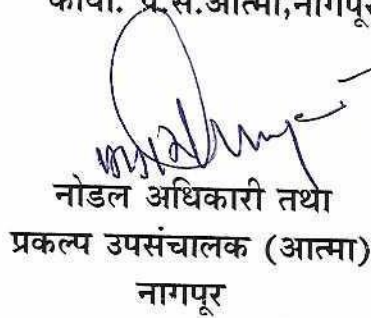 कार्या. प्र.सं.आत्मा,नागपूर
नोडल अधिकारी तथा
प्रकल्प उपसंचालक (आत्मा)
नागपूर